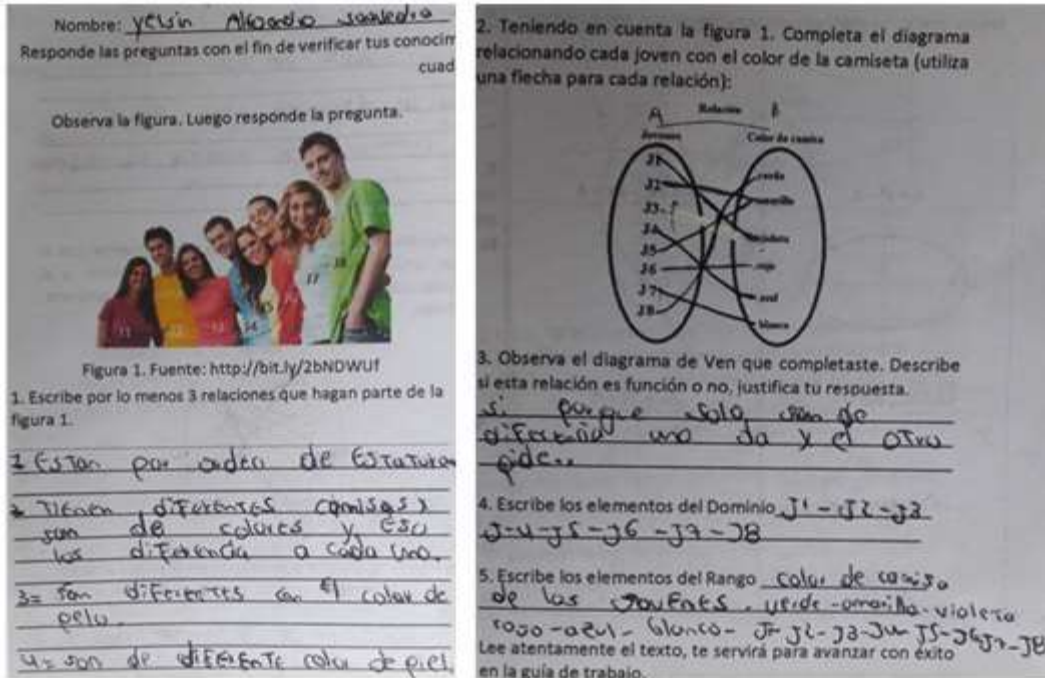 Nombre: Yeisin Alejandro Saavedra
Responde las preguntas con el fin de verificar tus conocim
cuad
Observa la figura. Luego responde la pregunta.
J1 J2 J3 J4 J5 J7 J8
Figura 1. Fuente: http://bit.ly/2bNDWUf
1. Escribe por lo menos 3 relaciones que hagan parte de la
figura 1.
1 ESTan por orden de ESTaTura
2 TIENEN diFerenTES camisas)
son de colores y ESO
los diFerencia a cada uno.
3= son diFerenTES en El color de
pelo
4= son de diFErEnTE color de piel
2. Teniendo en cuenta la figura 1. Completa el diagrama
relacionando cada joven con el color de la camiseta (utiliza
una flecha para cada relación):
A Relación B
Jóvenes Color de camisa
J1
J2
J3
J4
J5
J6
J7
J8
verde
amarillo
violeta
rojo
azul
blanco
3. Observa el diagrama de Ven que completaste. Describe
si esta relación es función o no, justifica tu respuesta.
si porque solo son de
diFerencia uno da y el OTro
pide..
4. Escribe los elementos del Dominio J1 - J2 - J3
J-4-J5-J6-J7-J8
5. Escribe los elementos del Rango color de camisa
de los JovENES. verde -amarillo- violeta
rojo -azul- blanco- J1- J2-J3-J4- J5-J6J7-J8
Lee atentamente el texto, te servirá para avanzar con éxito
en la guía de trabajo.